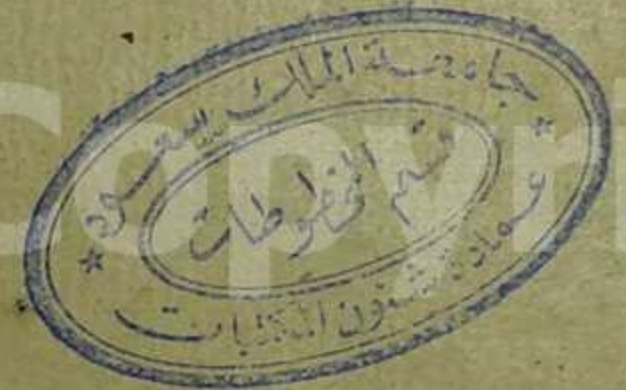 جامعة الملك سعود
قسم المخطوطات
عمادة شئون المكتبات
Copyri